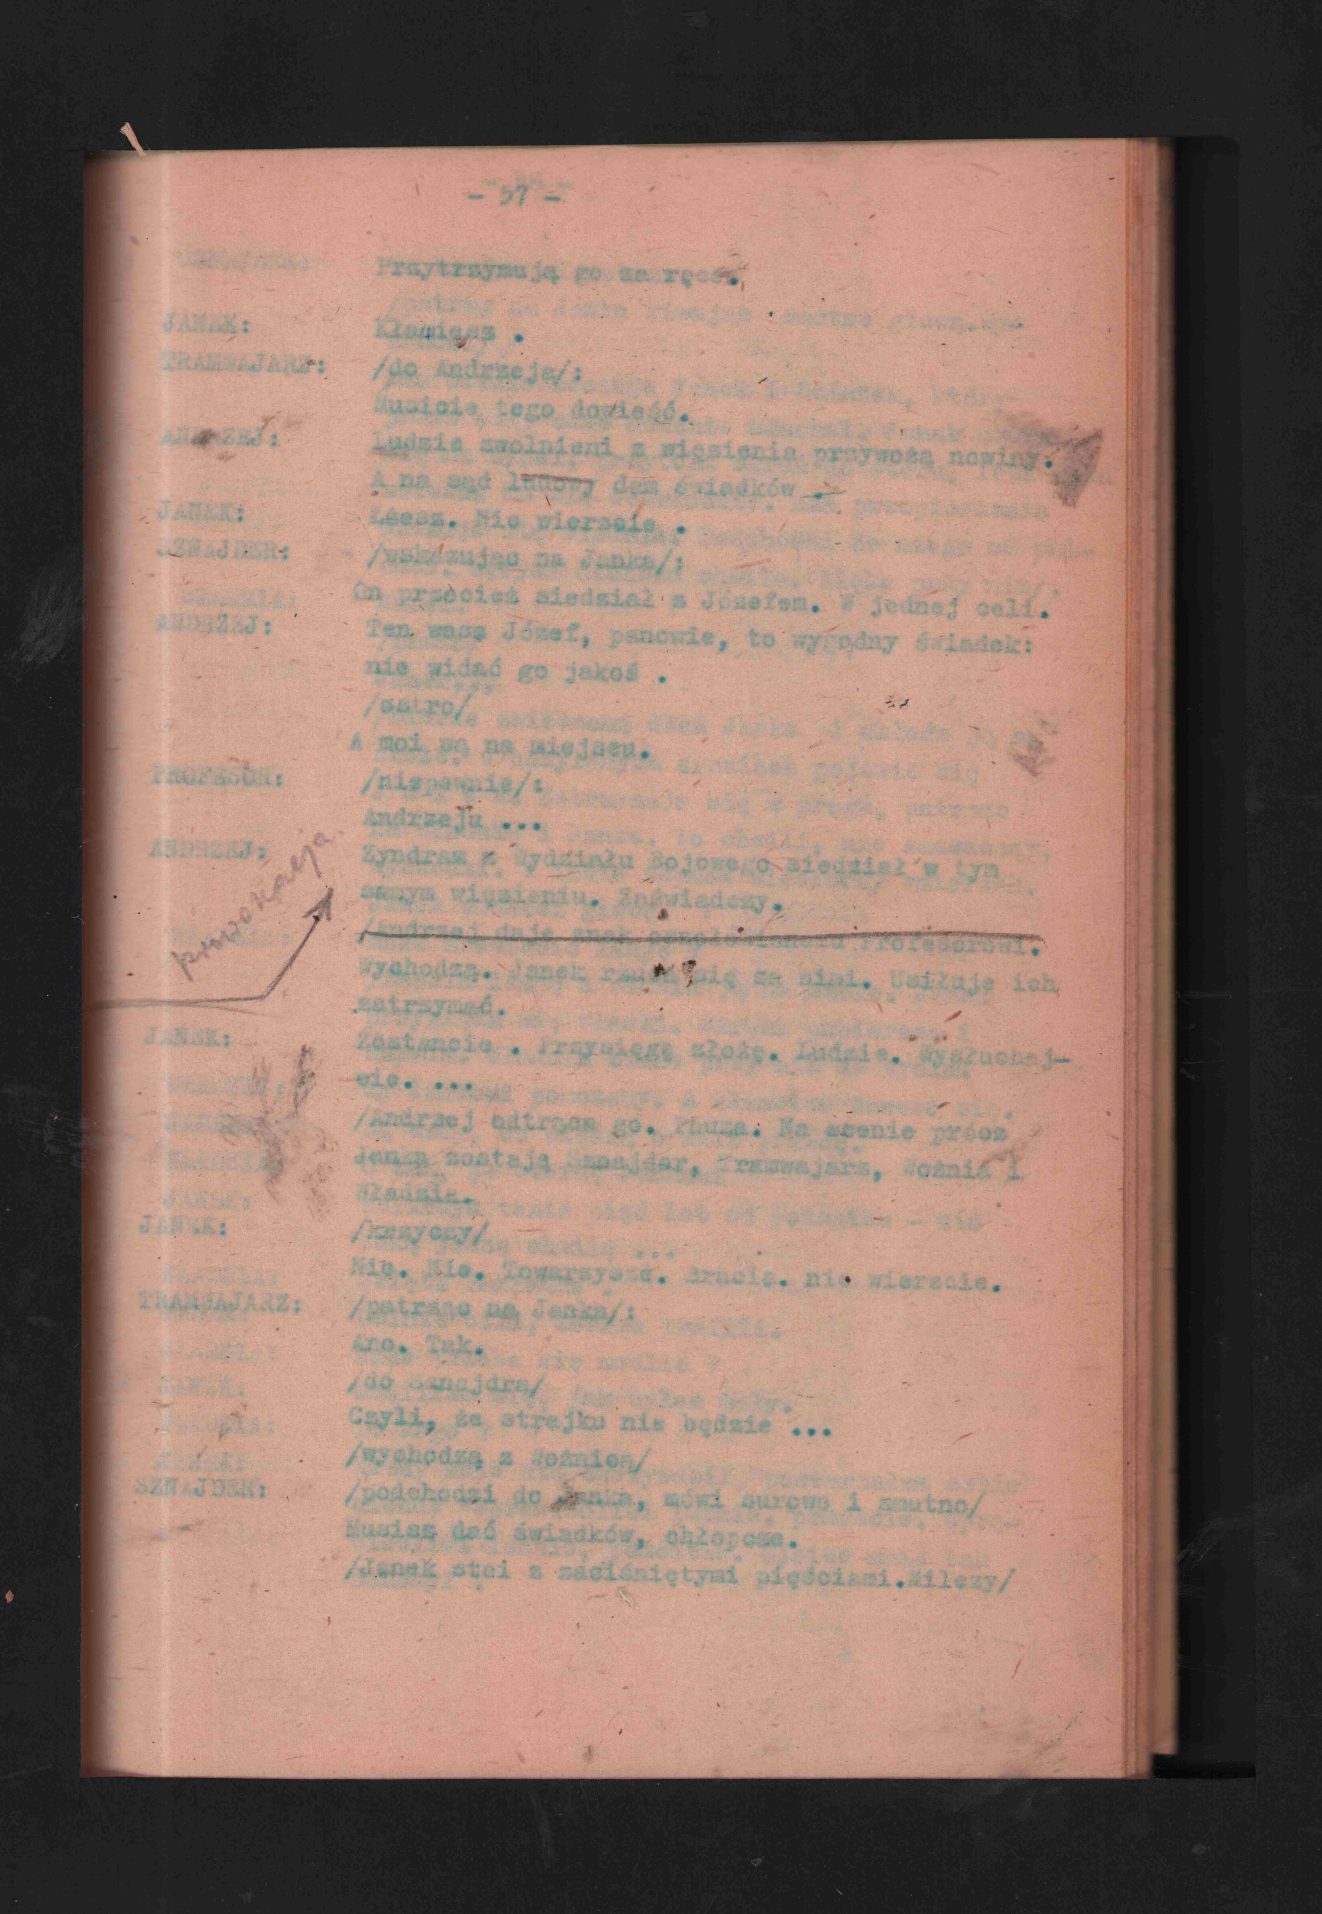 - 57 -
Przytrzymują go za ręce.
JANEK: Kłamiesz .
TRAMWAJARZ: /do Andrzeja/:
Musicie tego dowieść.
ANDRZEJ: Ludzie zwolnieni z więzienia przywożą nowiny.
A na sąd ludowy dam świadków .
JANEK: Łżesz. Nie wierzcie .
SZNAJDER: /wskazując na Janka/:
On przecież siedział z Józefem. W jednej celi.
ANDRZEJ: Ten wasz Józef, panowie, to wygodny świadek:
nie widać go jakoś .
/ostro/
A moi są na miejscu.
PROFESOR: /niepewnie/:
Andrzeju ...
ANDRZEJ: Zyndram z Wydziału Bojowego siedział w tym
samym więzieniu. Zaświadczy.
prowokacja
/Andrzej daje znak Profesorowi.
Wychodzą. Janek rzuca się za nimi. Usiłuje ich
zatrzymać.
JANEK: Zostańcie . Przysięgę złożę. Ludzie. Wysłuchaj-
cie. ...
/Andrzej odtrąca go. Pauza. Na scenie prócz
Janka zostają Sznajder, Tramwajarz, Woźnia i
Władzia.
JANEK: /krzyczy/
Nie. Nie. Towarzysze. Bracia. nie wierzcie.
TRAMWAJARZ: /patrząc na Janka/:
Ano. Tak.
/do Sznajdra/
Czyli, że strajku nie będzie ...
/wychodzą z Woźnicą/
SZNAJDER: /podchodzi do Janka, mówi surowo i smutno/
Musisz dać świadków, chłopcze.
/Janek stoi z zaciśniętymi pięściami.Milczy/